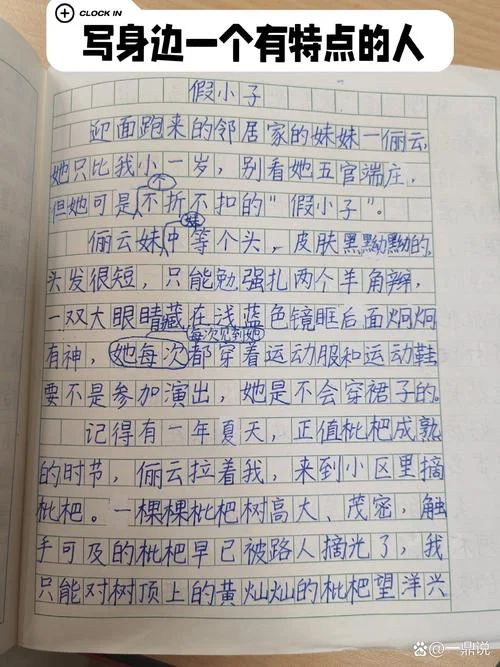 CLOCK IN
写身边一个有特点的人
假小子
迎面跑来的邻居家的妹妹一俪云,
她只比我小一岁，别看她五官端庄，
个
但她可是不折不扣的“假小子”。
妹
俪云妹中等个头，皮肤黑黝黝的，
头发很短，只能勉强扎两个羊角辫，
一双大眼睛藏在浅蓝色镜眶后面炯炯
每次见到她
有神，她每次都穿着运动服和运动鞋
要不是参加演出，她是不会穿裙子的。
记得有一年夏天，正值枇杷成熟
的时节，俪云拉着我，来到小区里摘
枇杷。一棵棵枇杷树高大、茂密，触
手可及的枇杷早已被路人摘光了，我
只能对树顶上的黄灿灿的枇杷望洋兴
一鼎说